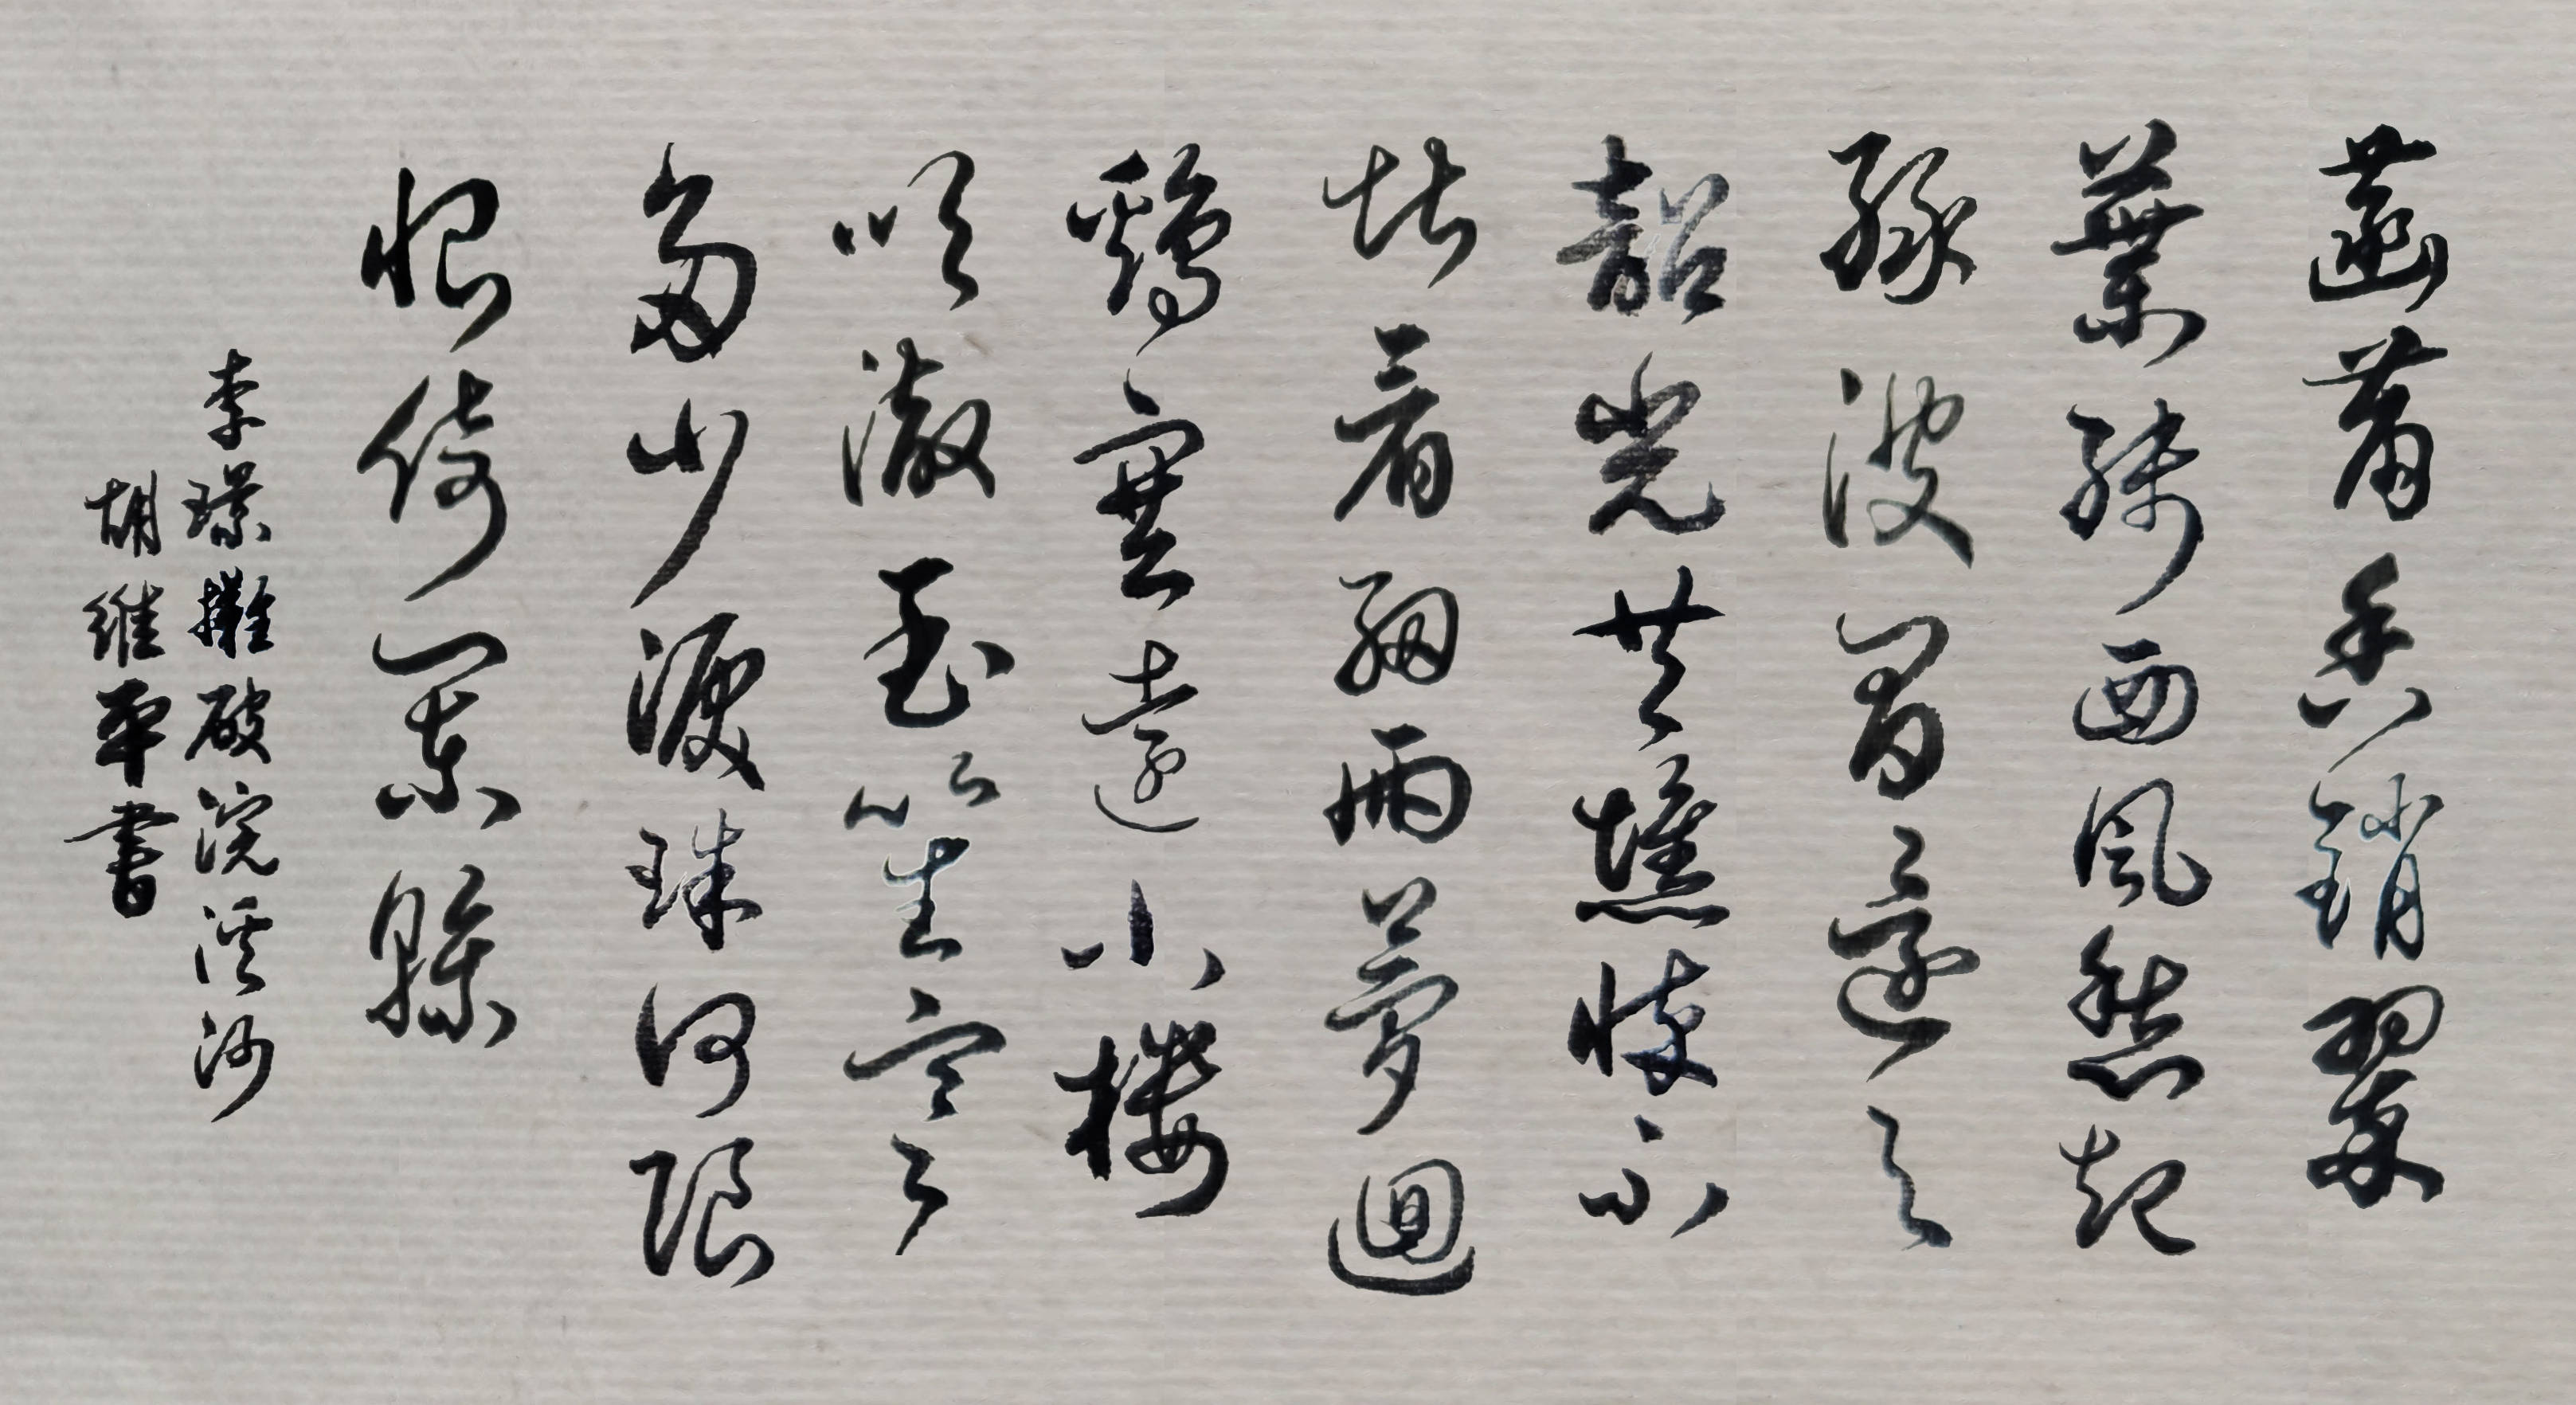 菡萏香銷翠
葉殘西風愁起
綠波間還與
韶光共憔悴不
堪看細雨夢迴
鷄塞遠小樓
吹徹玉笙寒
多少淚珠何限
恨倚闌干
李璟攤破浣溪沙
胡維平書